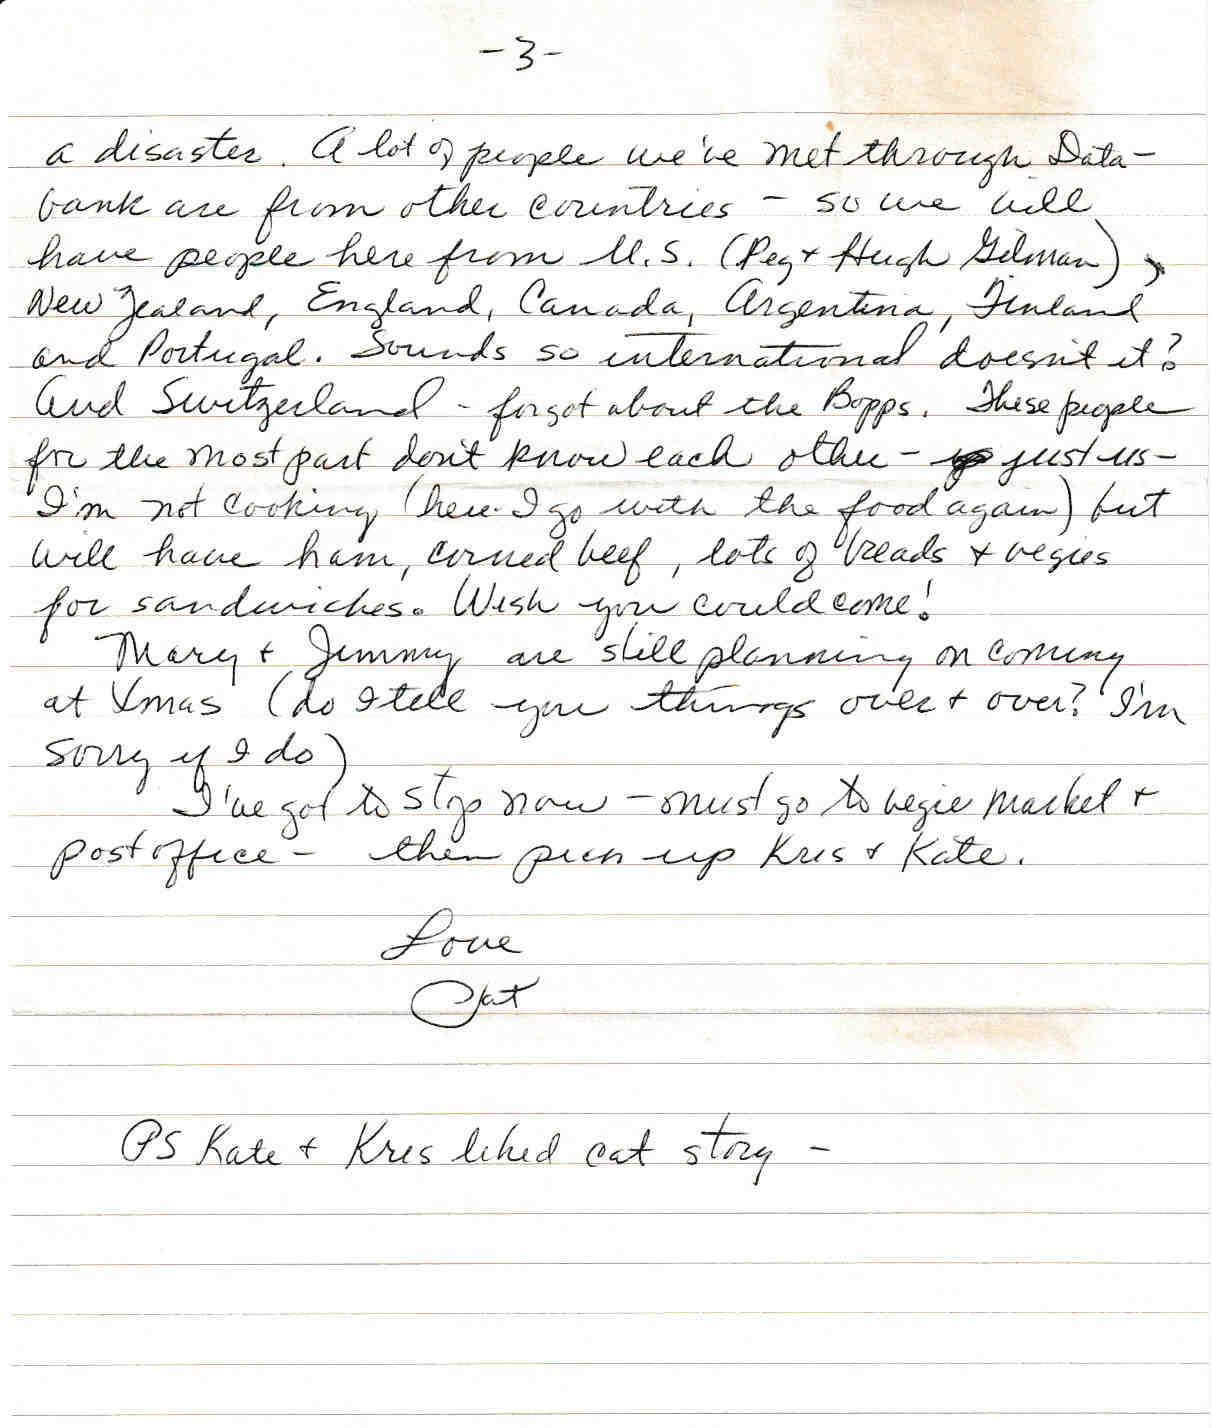 -3-
a disaster. A lot of people we've met through Data-
bank are from other countries - so we will
have people here from U.S. (Peg + Hugh Gilman),
New Zealand, England, Canada, Argentina, Finland
and Portugal. Sounds so international doesn't it?
And Switzerland - forgot about the Bopps. These people
for the most part don't know each other - just us -
I'm not cooking (here I go with the food again) but
will have ham, corned beef, lots of breads + vegies
for sandwiches. Wish you could come!
Mary + Jimmy are still planning on coming
at Xmas (do I tell you things over + over? I'm
sorry if I do)
I've got to stop now - must go to vegie market +
post office - then pick up Kris + Kate.
Love
Pat
PS Kate + Kris liked cat story -